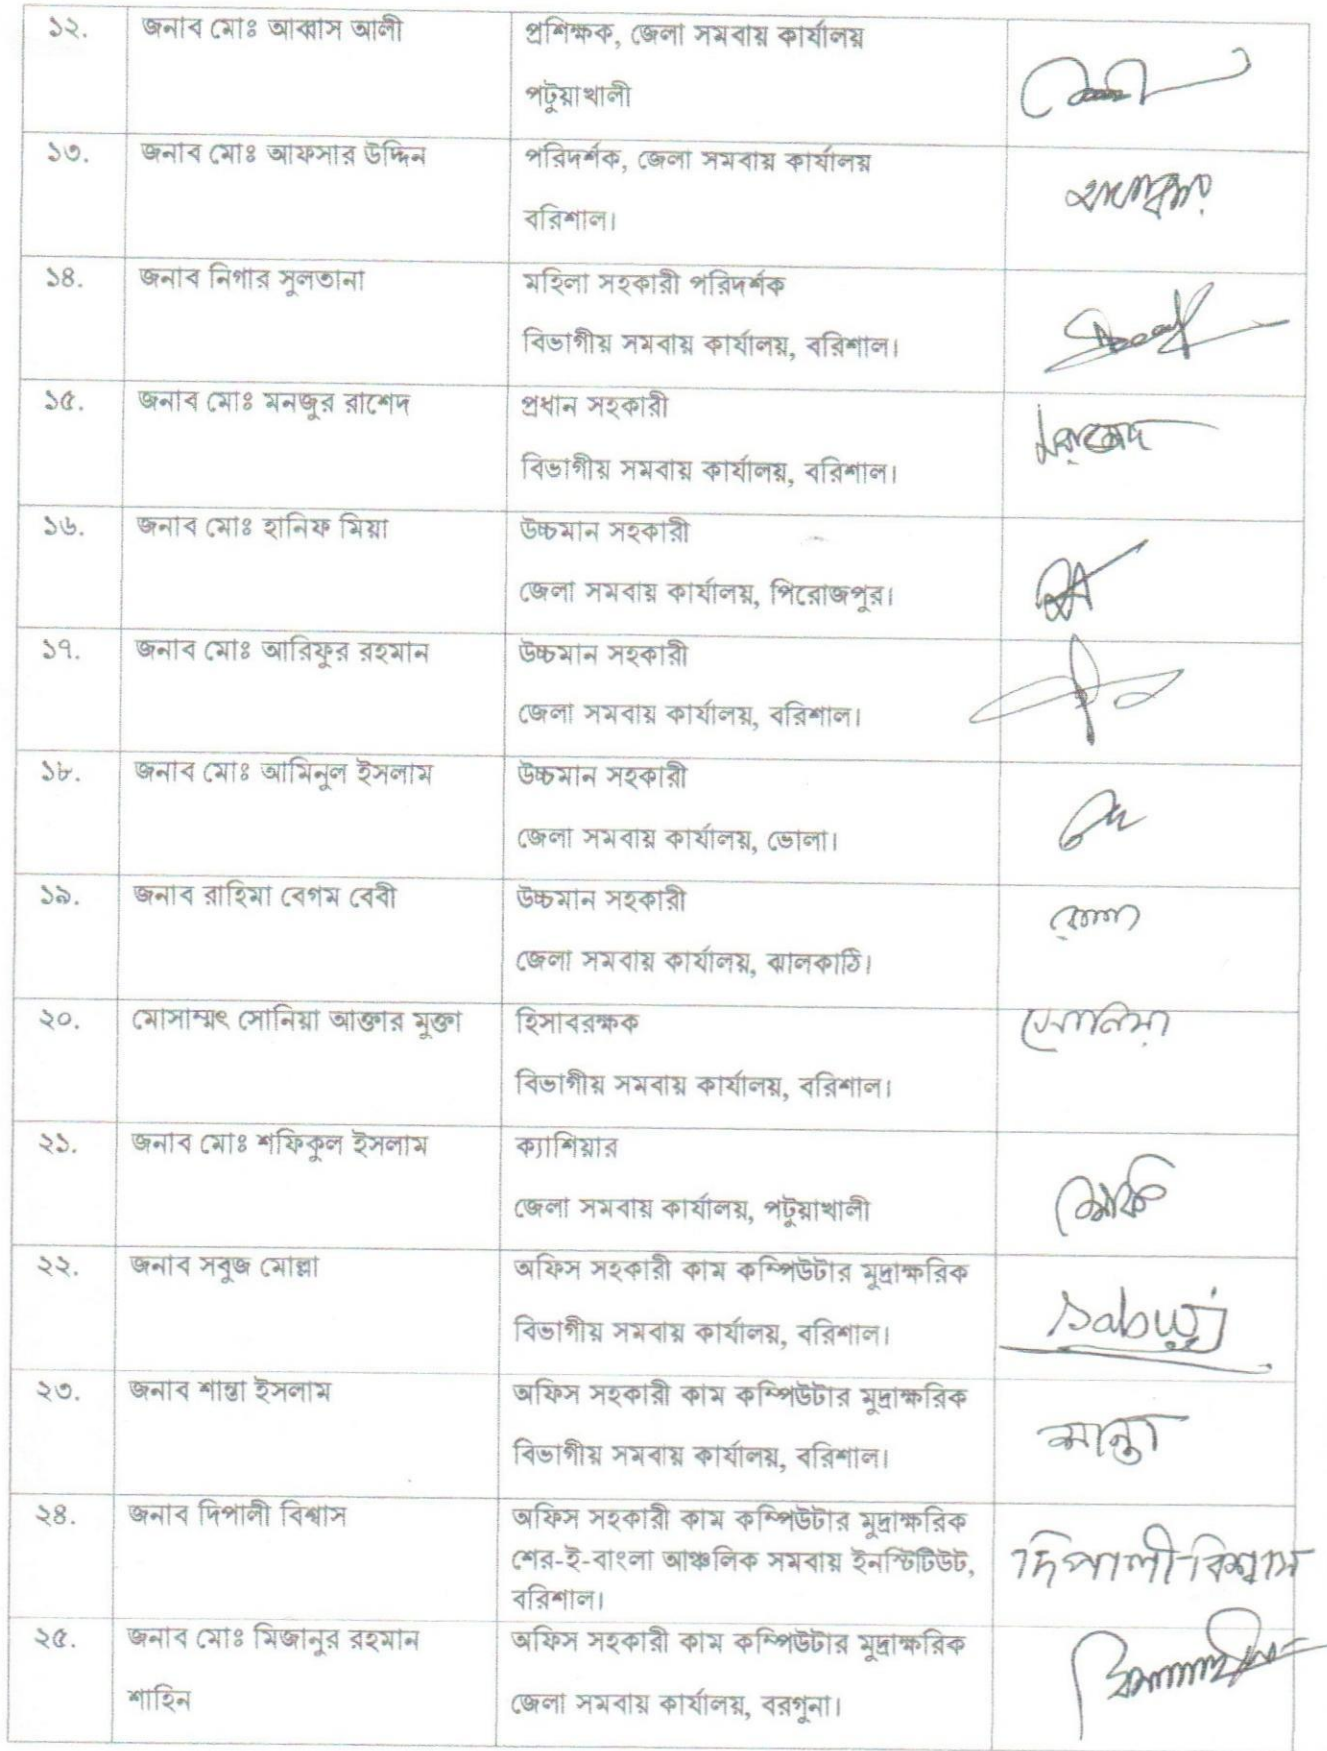 ১২. জনাব মোঃ আব্বাস আলী প্রশিক্ষক, জেলা সমবায় কার্যালয়
পটুয়াখালী
১৩. জনাব মোঃ আফসার উদ্দিন পরিদর্শক, জেলা সমবায় কার্যালয়
বরিশাল।
১৪. জনাব নিগার সুলতানা মহিলা সহকারী পরিদর্শক
বিভাগীয় সমবায় কার্যালয়, বরিশাল।
১৫. জনাব মোঃ মনজুর রাশেদ প্রধান সহকারী
বিভাগীয় সমবায় কার্যালয়, বরিশাল।
১৬. জনাব মোঃ হানিফ মিয়া উচ্চমান সহকারী
জেলা সমবায় কার্যালয়, পিরোজপুর।
১৭. জনাব মোঃ আরিফুর রহমান উচ্চমান সহকারী
জেলা সমবায় কার্যালয়, বরিশাল।
১৮. জনাব মোঃ আমিনুল ইসলাম উচ্চমান সহকারী
জেলা সমবায় কার্যালয়, ভোলা।
১৯. জনাব রাহিমা বেগম বেবী উচ্চমান সহকারী
জেলা সমবায় কার্যালয়, ঝালকাঠি।
২০. মোসাম্মৎ সোনিয়া আক্তার মুক্তা হিসাবরক্ষক সোনিয়া
বিভাগীয় সমবায় কার্যালয়, বরিশাল।
২১. জনাব মোঃ শফিকুল ইসলাম ক্যাশিয়ার
জেলা সমবায় কার্যালয়, পটুয়াখালী
২২. জনাব সবুজ মোল্লা অফিস সহকারী কাম কম্পিউটার মুদ্রাক্ষরিক
বিভাগীয় সমবায় কার্যালয়, বরিশাল। Sabuj
২৩. জনাব শান্তা ইসলাম অফিস সহকারী কাম কম্পিউটার মুদ্রাক্ষরিক
বিভাগীয় সমবায় কার্যালয়, বরিশাল। শান্তা
২৪. জনাব দিপালী বিশ্বাস অফিস সহকারী কাম কম্পিউটার মুদ্রাক্ষরিক
শের-ই-বাংলা আঞ্চলিক সমবায় ইনস্টিটিউট, দিপালী বিশ্বাস
বরিশাল।
২৫. জনাব মোঃ মিজানুর রহমান অফিস সহকারী কাম কম্পিউটার মুদ্রাক্ষরিক
শাহিন জেলা সমবায় কার্যালয়, বরগুনা।